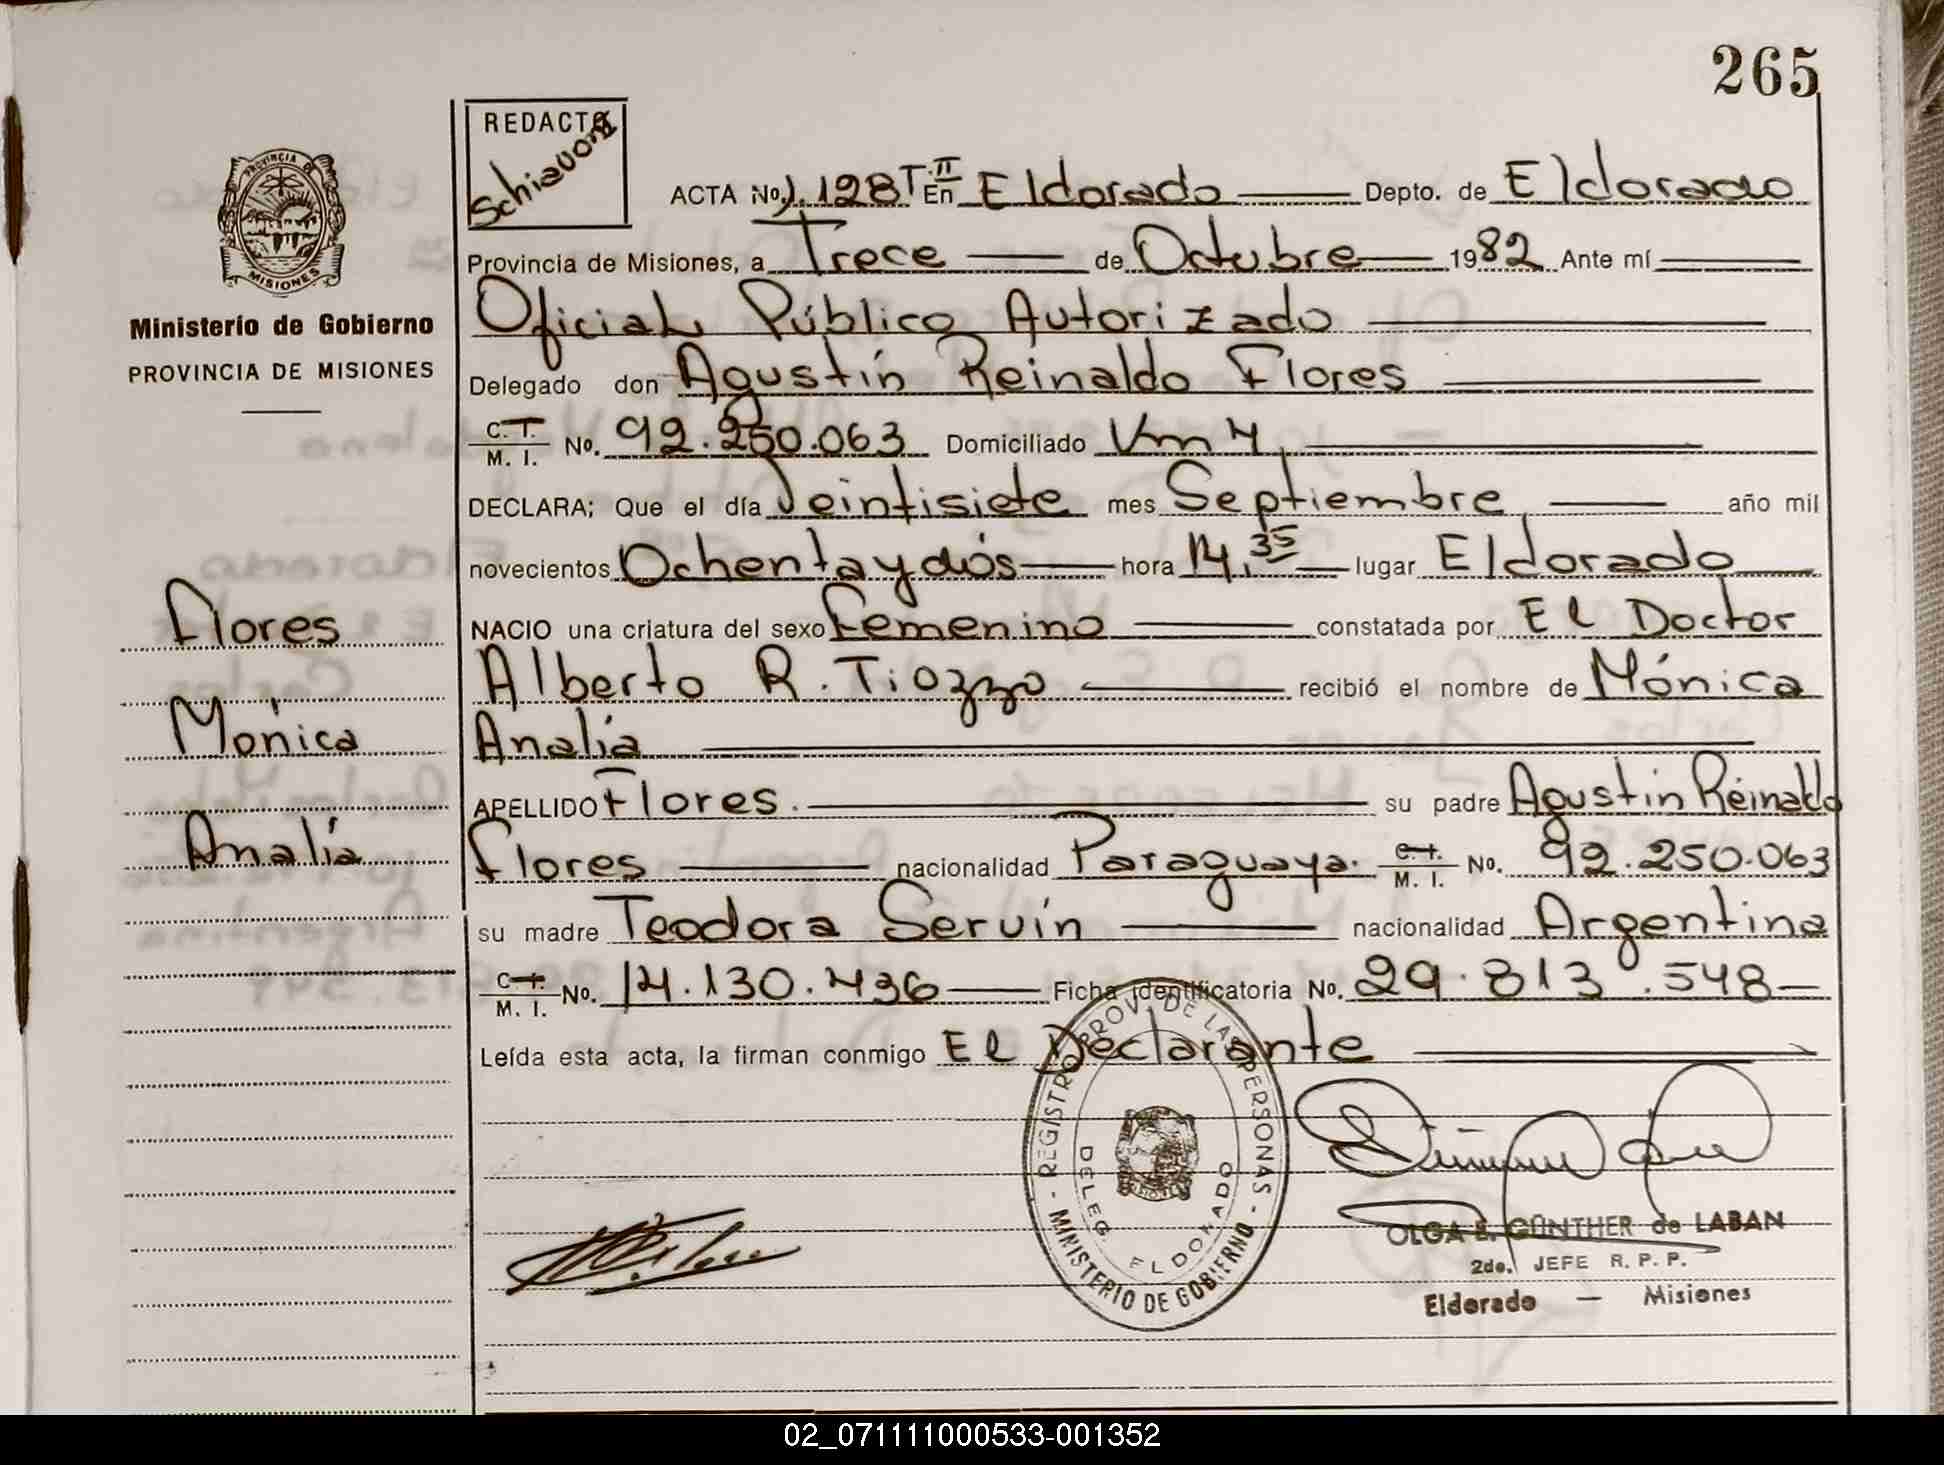 265
REDACTO
Schiavoni
PROVINCIA DE
MISIONES
Ministerio de Gobierno
PROVINCIA DE MISIONES
ACTA No. 1.128 T II En Eldorado Depto. de Eldorado
Provincia de Misiones, a Trece de Octubre 1982 Ante mí
Oficial Público Autorizado
Delegado don Agustín Reinaldo Flores
C. T. M. I. No. 92.250.063 Domiciliado Km 4
DECLARA; Que el día Veintisiete mes Septiembre año mil
novecientos Ochenta y dós hora 14,35 lugar Eldorado
NACIO una criatura del sexo Femenino constatada por El Doctor
Alberto R. Tiozzo recibió el nombre de Mónica
Analía
APELLIDO Flores. su padre Agustín Reinaldo
Flores nacionalidad Paraguaya. C. I. M. I. No. 92.250.063
su madre Teodora Servín nacionalidad Argentina
C. I. M. I. No. 14.130.436 Ficha identificatoria No. 29.813.548
Leída esta acta, la firman conmigo El Declarante
Flores
Mónica
Analía
REGISTRO PROV. DE LAS PERSONAS
DELEG. ELDORADO
MINISTERIO DE GOBIERNO
OLGA E. GÜNTHER de LABAN
2do. JEFE R. P. P.
Eldorado — Misiones
02_071111000533-001352